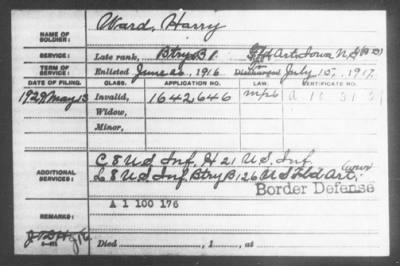 NAME OF SOLDIER: Ward, Harry
SERVICE: Late rank, Btry B 1 Art. Iowa N.G.
TERM OF SERVICE: Enlisted June 20, 1916 Discharged July 15, 1917.
DATE OF FILING. CLASS. APPLICATION NO. LAW. CERTIFICATE NO.
1929 May 13 Invalid, 1642646
Widow,
Minor,
ADDITIONAL SERVICES: C 8 U.S. Inf. H 21 U.S. Inf.
L 8 U.S. Inf. Btry B 126 U.S. Fld Art.
Border Defense
A 1 100 176
REMARKS:
Died , 1 , at